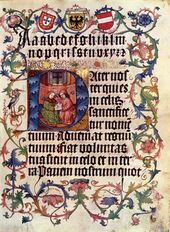 A a a b c d e f g h i k l m
n o p q r r s s t u v x y z
Pater nos
ter qui es
in celis
sanctifice
tur nome
tuum adueniat regnu
tuum fiat voluntas
tua sicut in celo et in ter
ra Panem nostrum quot